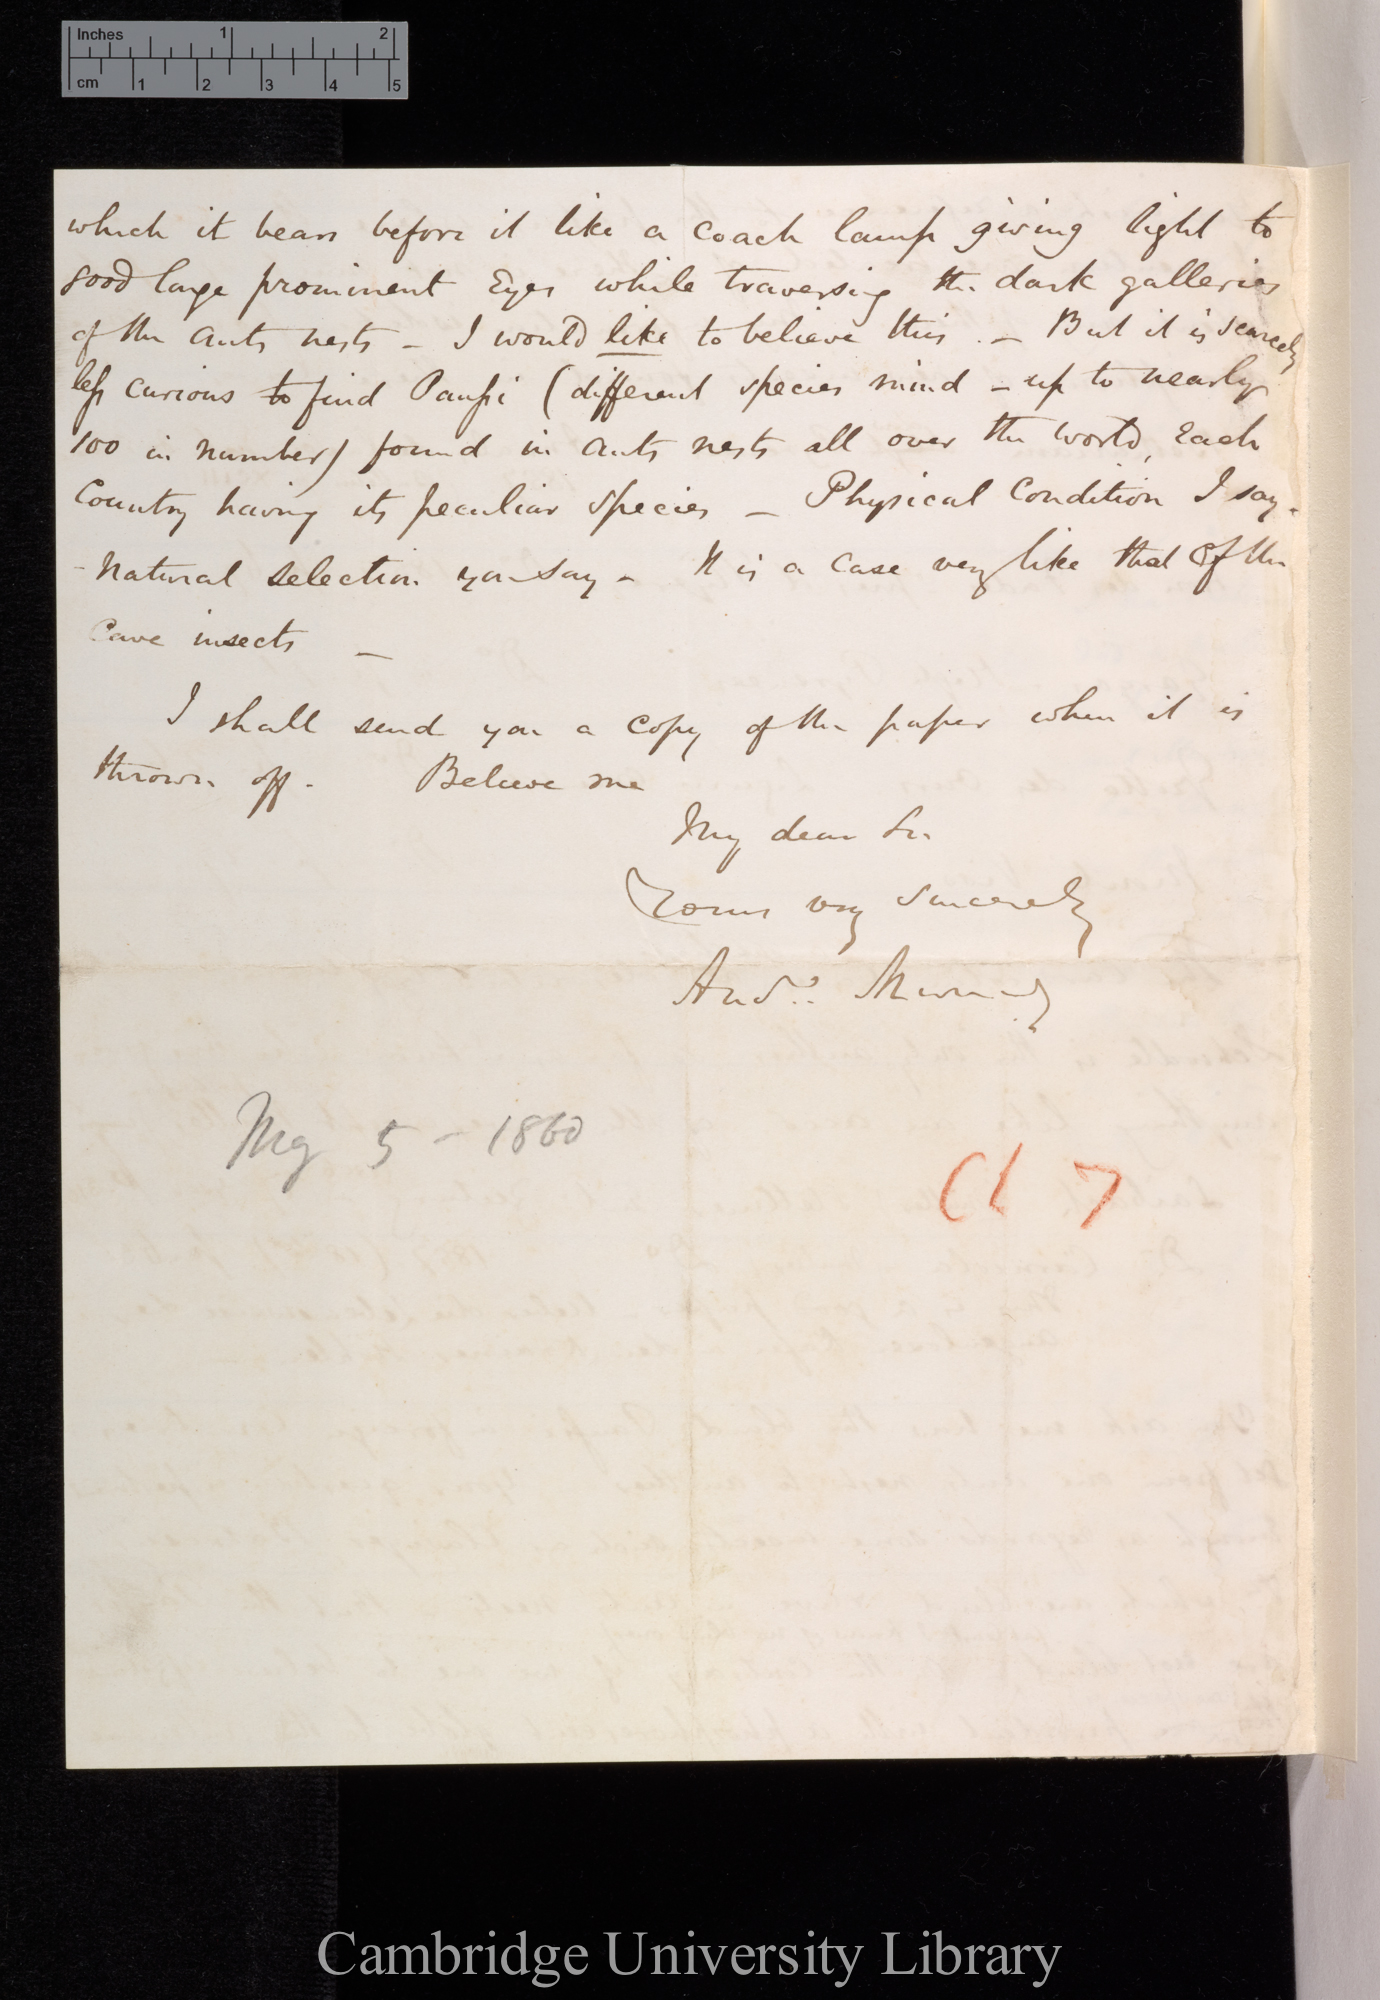 Inches 1 2
cm 1 2 3 4 5
which it bears before it like a coach lamp giving light to
good large prominent Eyes while traversing the dark galleries
of the ants nests – I would like to believe this. – But it is scarcely
less curious to find Paussi (different species mind – up to nearly
100 in number) found in ants nests all over the world, Each
Country having its peculiar species – Physical Condition I say.
– Natural selection you say – It is a case very like that of the
Cave insects –
I shall send you a copy of the paper when it is
thrown off. Believe me
My dear Sir
Yours very sincerely
Andw. Murray
My 5 – 1860
Ch 7
Cambridge University Library